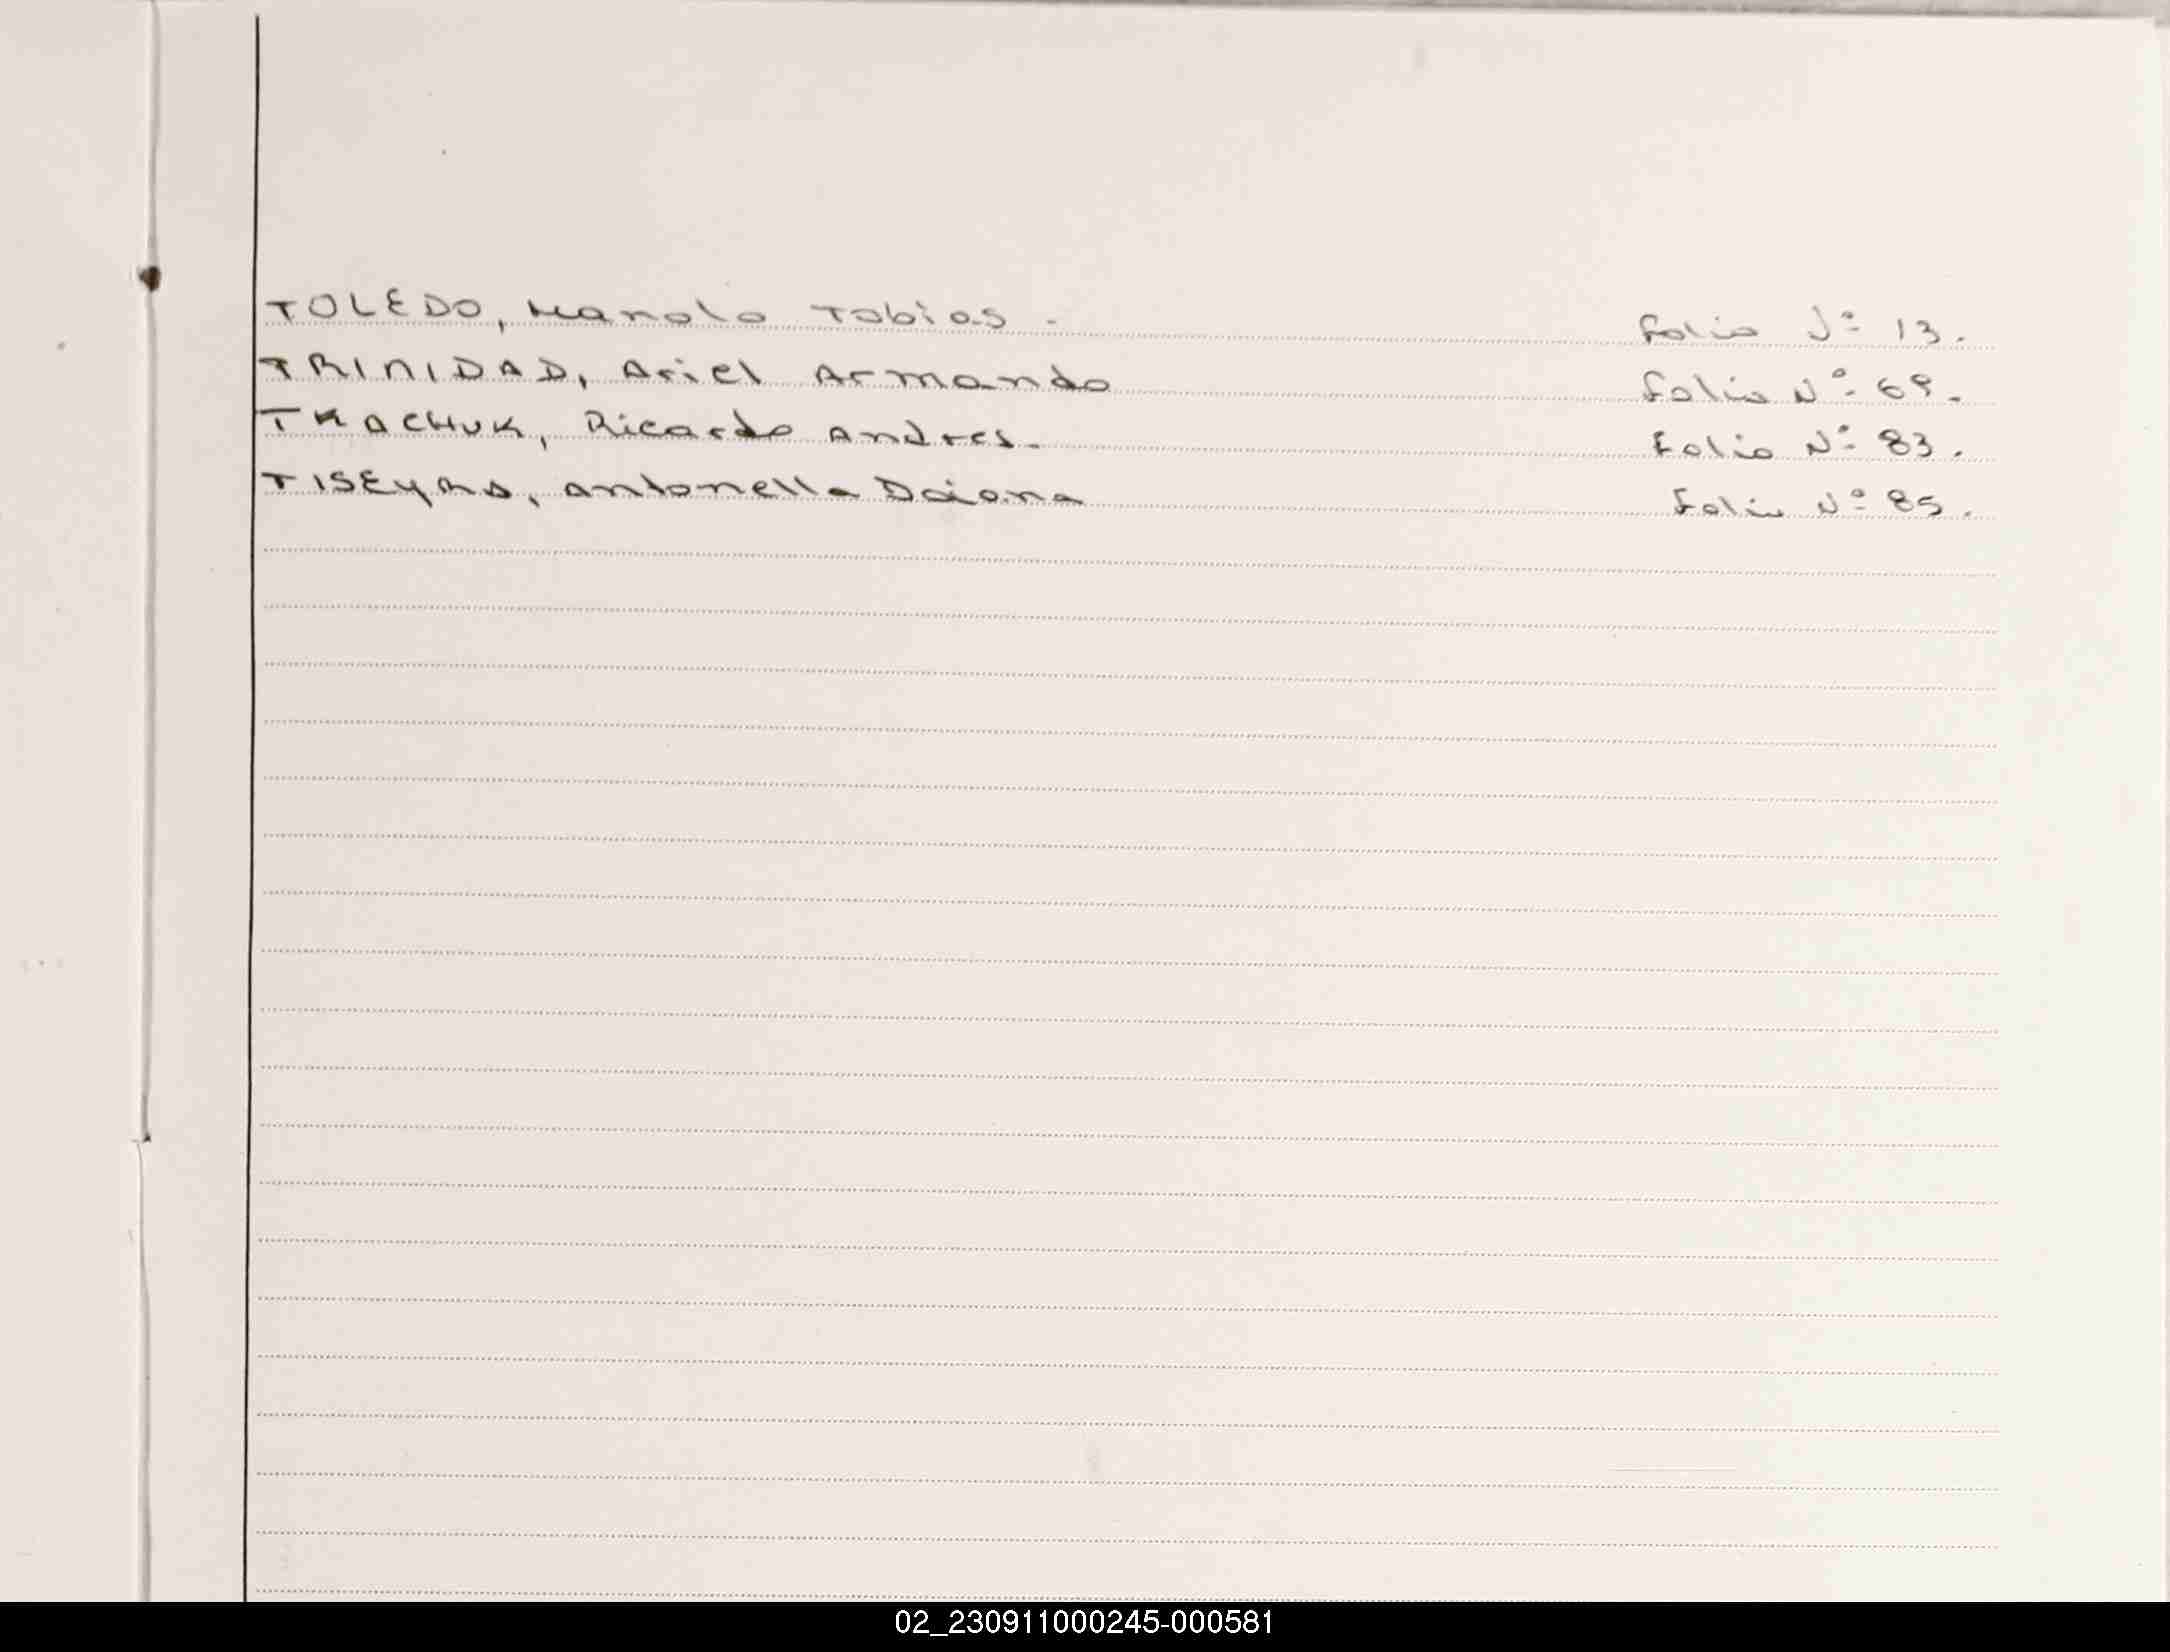 TOLEDO, Manolo Tobias. Folio Nº 13.
TRINIDAD, Ariel Armando Folio Nº 69.
TKACHUK, Ricardo Andres. Folio Nº 83.
TISEYRA, Antonella Daiana Folio Nº 85.
02_230911000245-000581